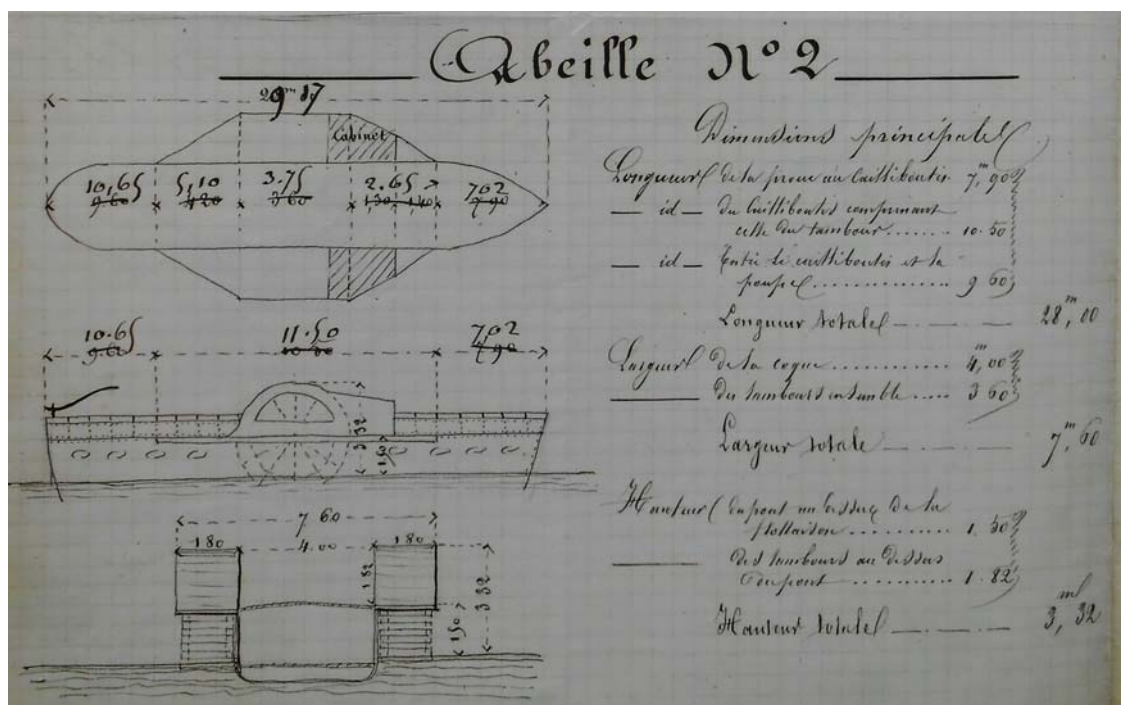 Abeille Nº 2
29m 17
Cabinet
10,65 5,10 3.75 2.65 7,02
9 60 4 20 3 60 1,30 1,40 7 90
10.65 11.50 7,02
9.60 10 50 7 90
3 32
1,50
7 60
1 80 4.00 1 80
1 82
3 32
1,50
Dimensions principales
Longueur de la proue au Cailliboutis 7,m 90
— id — du Cailliboutis comprenant
celle du tambour ....... 10.50
— id — Entre le cailliboutis et la
poupe .............. 9 60
Longueur totale — . — . — 28,m 00
Largeur de la coque ............ 4,m 00
——— des tambours ensemble ..... 3 60
Largeur totale — . — . — 7,m 60
Hauteur du pont au dessus de la
flottaison .......... 1. 50
——— des tambours au dessus
du pont .......... 1. 82
Hauteur totale — . — . — 3,ml 32